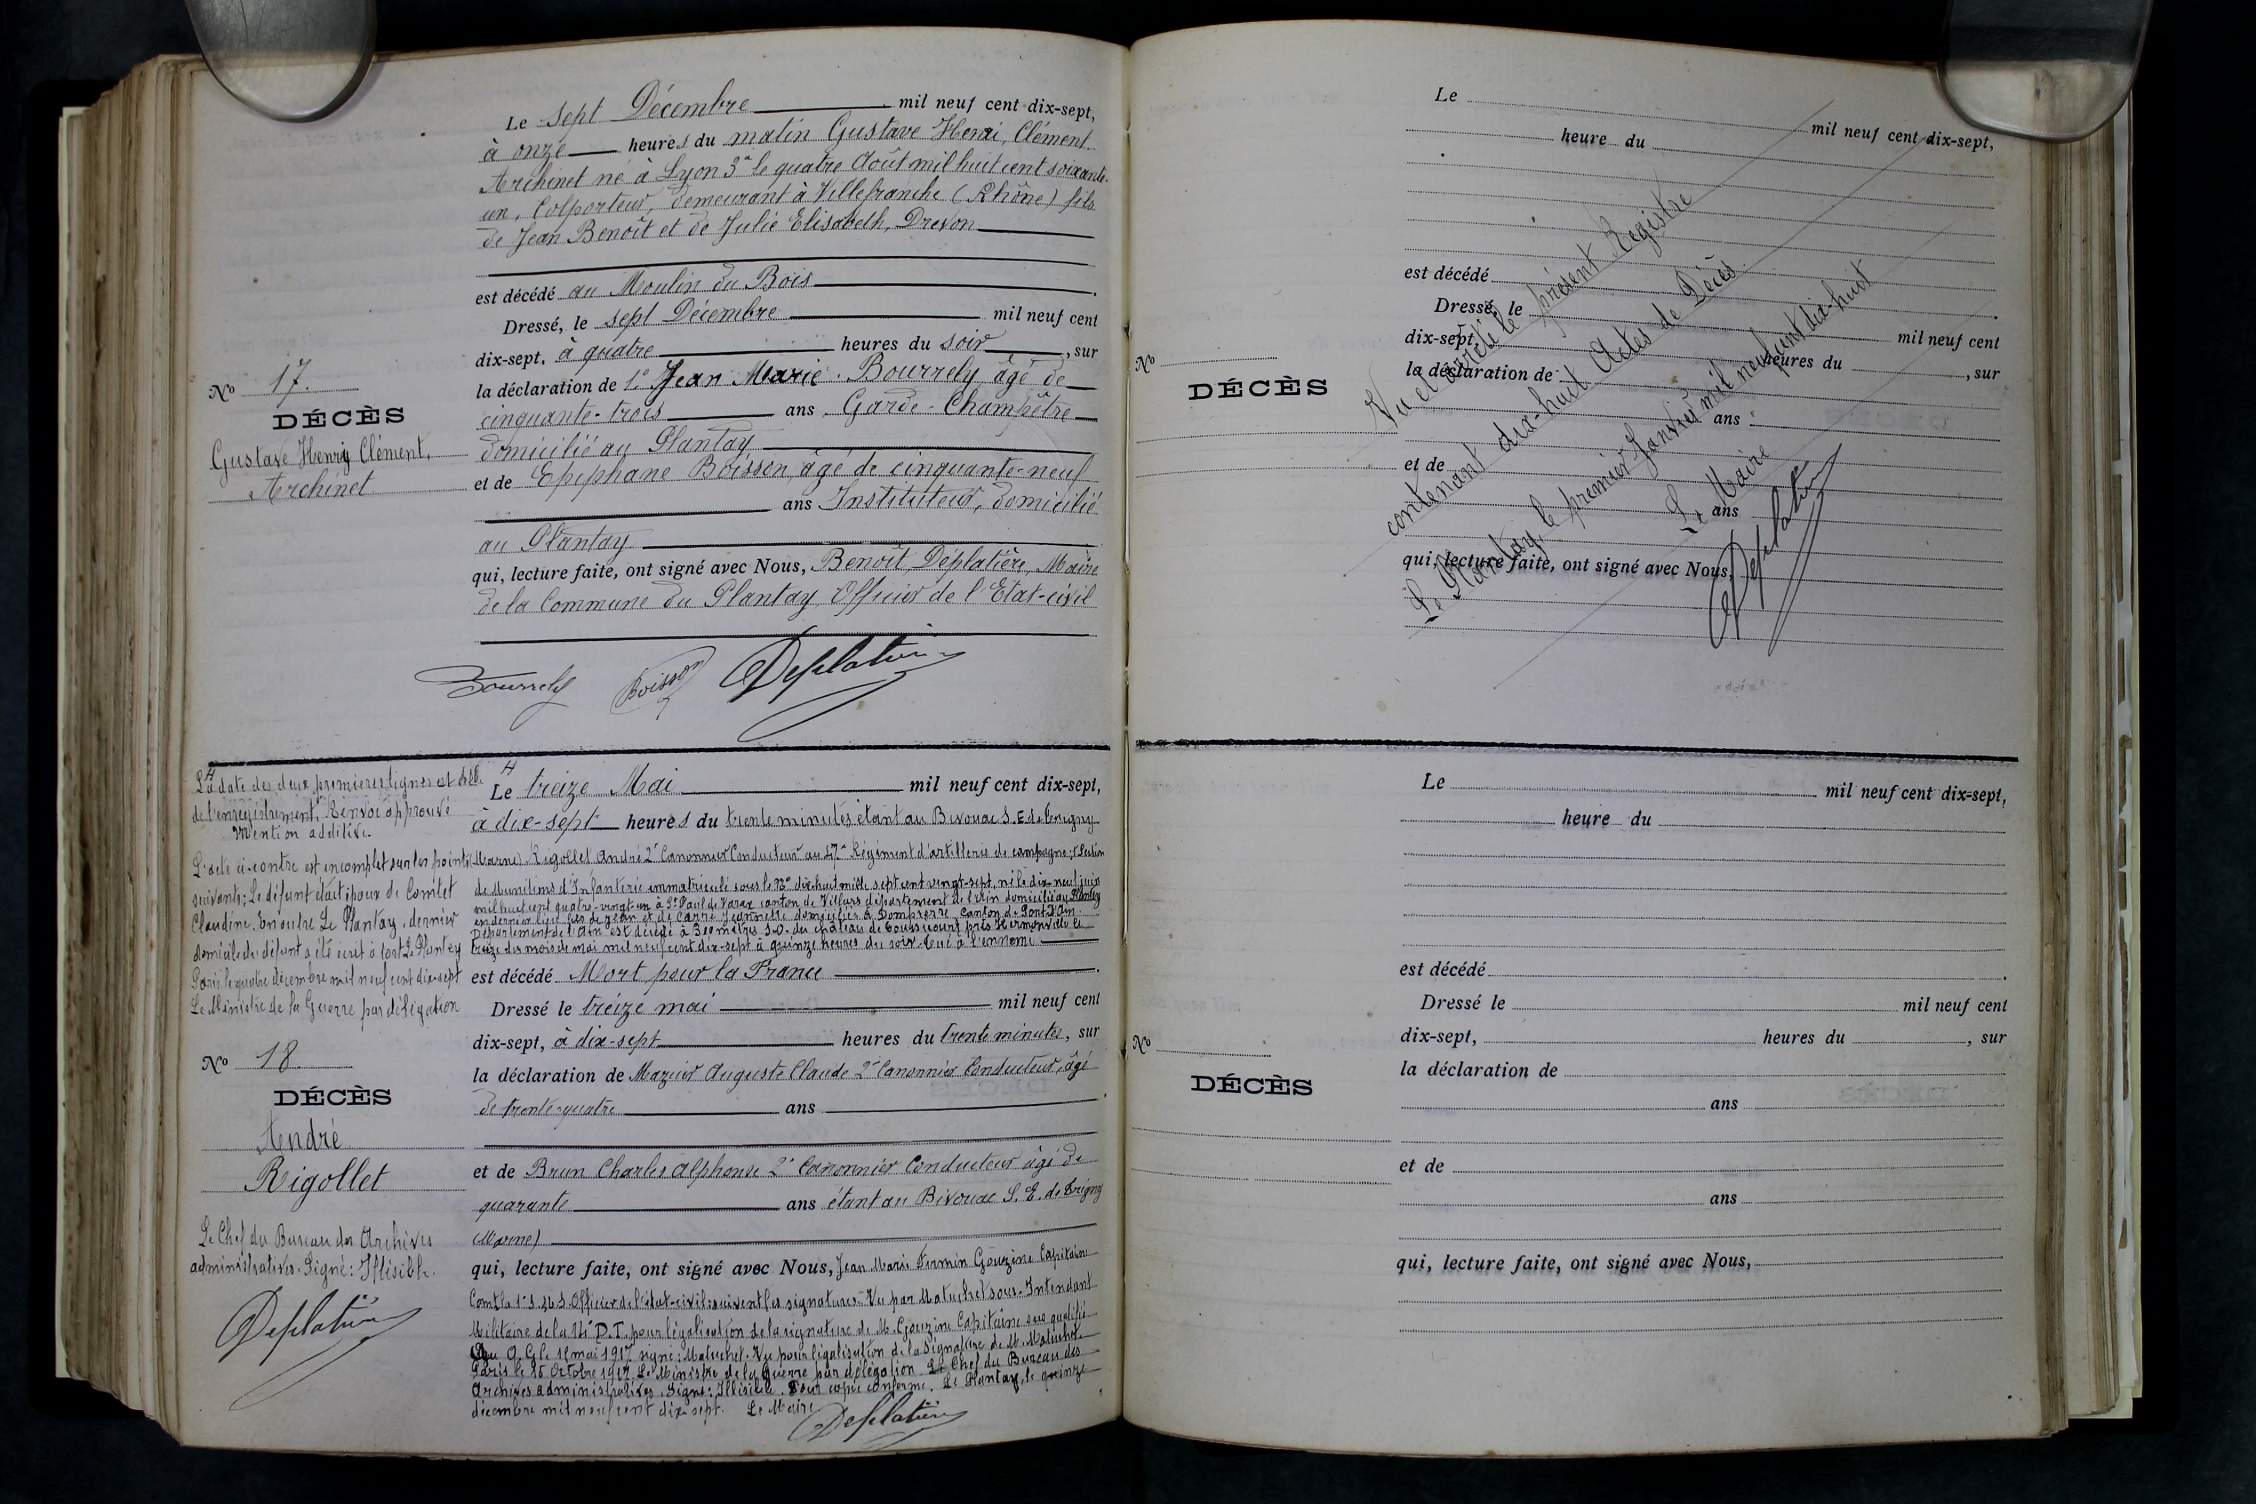 Le sept Décembre mil neuf cent dix-sept,
à onze heures du matin Gustave Henri, Clément
Archinet né à Lyon 3e le quatre Août mil huit cent soixante-
un, Colporteur, demeurant à Villefranche (Rhône) fils
de Jean Benoît et de Julie Elisabeth, Drevon
est décédé au Moulin du Bois
Dressé, le sept Décembre mil neuf cent
dix-sept, à quatre heures du soir, sur
la déclaration de 1° Jean Marie Bourrely, âgé de
cinquante-trois ans Garde-Champêtre
domicilié au Plantay
et de Epiphane Boisson, âgé de cinquante-neuf
ans Instituteur, domicilié
au Plantay
qui, lecture faite, ont signé avec Nous, Benoît Déplatière, Maire
de la Commune du Plantay, Officier de l'Etat-civil
Bourrely Boisson Deplatière
No 17.
DÉCÈS
Gustave Henry Clément,
Archinet
La date des deux premières lignes est celle
de l'enregistrement. Renvoi approuvé
Mention additive.
L'acte ci-contre est incomplet sur les points
suivants: Le défunt était époux de Comtet
Claudine. En outre Le Plantay, dernier
domicile du défunt a été écrit à tort Le Plantey
Paris le quatre décembre mil neuf cent dix-sept
Le Ministre de la Guerre par délégation
No 18.
DÉCÈS
André
Rigollet
Le Chef du Bureau des Archives
administratives. Signé: Illisible.
Deplatière
Le treize Mai mil neuf cent dix-sept,
à dix-sept heures du trente minutes étant au Bivouac S.E de Trigny
(Marne). Rigollet André 2e Canonnier Conducteur au 47e Régiment d'artillerie de campagne; 1e Section
de Munitions d'Infanterie immatriculé sous le No dix-huit mille sept cent vingt-sept, né le dix-neuf juin
mil huit cent quatre-vingt-un à St Paul de Varax canton de Villars département de l'Ain domicilié au Plantey
en dernier lieu fils de Jean et de Carré Jeannette domiciliés à Dompierre Canton de Pont d'Ain
Département de l'Ain est décédé à 300 mètres S.O. du château de Toussicourt près Hermonville le
treize du mois de mai mil neuf cent dix-sept à quinze heures du soir. Tué à l'ennemi
est décédé Mort pour la France
Dressé le treize mai mil neuf cent
dix-sept, à dix-sept heures du trente minutes, sur
la déclaration de Mazuir Auguste Claude 2e Canonnier Conducteur, âgé
de trente-quatre ans
et de Brun Charles Alphonse 2e Canonnier Conducteur âgé de
quarante ans étant au Bivouac S.E. de Trigny
(Marne)
qui, lecture faite, ont signé avec Nous, Jean Marie Firmin Gouzine Capitaine
Comt la 1e S.M.I. Officier de l'état-civil: suivent les signatures. Vu par Matuchet sous-Intendant
Militaire de la 14e D.I. pour légalisation de la signature de M. Gouzine Capitaine sus qualifié
Au Q.G. le 18 mai 1917 signé: Matuchet. Vu pour légalisation de la signature de M. Matuchet
Paris le 16 Octobre 1917. Le Ministre de la Guerre par délégation Le Chef du Bureau des
Archives administratives. Signé: Illisible. Pour copie conforme. Le Plantay, le quinze
décembre mil neuf cent dix-sept. Le Maire
Deplatière
Le mil neuf cent dix-sept,
heure du
est décédé
Dressé, le mil neuf cent
dix-sept, heures du , sur
la déclaration de
ans
et de
ans
qui, lecture faite, ont signé avec Nous,
No
DÉCÈS
Vu et arrêté le présent Registre
contenant dix-huit Actes de Décès.
Le Plantay, le premier Janvier mil neuf cent dix-huit
Le Maire
Deplatière
Le mil neuf cent dix-sept,
heure du
est décédé
Dressé le mil neuf cent
dix-sept, heures du , sur
la déclaration de
ans
et de
ans
qui, lecture faite, ont signé avec Nous,
No
DÉCÈS